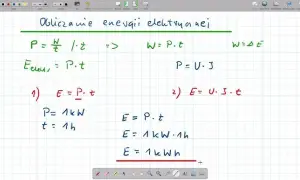 Obliczanie energii elektrycznej
P = W/t /·t => W = P·t W = ΔE
E = P·t P = U·I
1) E = P·t 2) E = U·I·t
P = 1kW
t = 1h
E = P·t
E = 1kW·1h
E = 1kWh